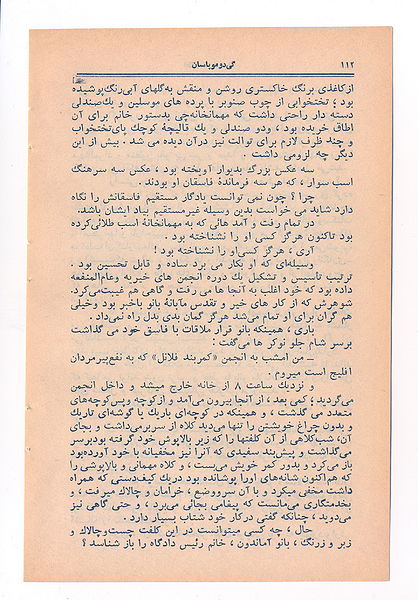 ۱۱۲
گی‌دوموپاسان
از کاغذی برنگ خاکستری روشن و منقش به‌گلهای آبی‌رنگ‌پوشیده
بود ؛ تختخوابی از چوب صنوبر با پرده های موسلین و یك‌صندلی
دسته دار راحتی داشت که مهمانخانه‌چی بدستور خانم برای آن
اطاق خریده بود ، ودو صندلی و یك قالیچهٔ کوچك پای‌تختخواب
و چند ظرف لازم برای توالت نیز درآن دیده می شد . بیش از این
دیگر چه لزومی داشت .
سه عکس بزرگ بدیوار آویخته بود ، عکس سه سرهنگ
اسب سوار ، که هر سه فرماندهٔ فاسقان او بودند .
چرا ؟ چون نمی توانست یادگار مستقیم فاسقانش را نگاه
دارد شاید می خواست بدین وسیله غیرمستقیم بیاد ایشان باشد.
در تمام رفت و آمد هائی که به مهمانخانهٔ اسب طلائی‌کرده
بود تاکنون هرگز کسی او را نشناخته بود .
آری ، هرگز کسی‌او را نشناخته بود !
وسیله‌ای که او بکار می برد ساده و قابل تحسین بود .
ترتیب تأسیس و تشکیل یك دوره انجمن های خیریه وعام‌المنفعه
داده بود که خود اغلب به آنجا ها می رفت و گاهی هم غیبت‌می‌کرد.
شوهرش که از کار های خیر و تقدس مآبانهٔ بانو باخبر بود وخیلی
هم گران برای او تمام می‌شد هرگز گمان بدی بدل راه نمی‌داد .
باری ، همینکه بانو قرار ملاقات با فاسق خود می گذاشت
برسر شام جلو نوکر ها می‌گفت :
ــ من امشب به انجمن «کمربند فلانل» که به نفع‌پیرمردان
افلیج است میروم .
و نزدیك ساعت ۸ از خانه خارج میشد و داخل انجمن
می‌گردید ؛ کمی بعد ، از آنجا بیرون می‌آمد و ازکوچه وپس‌کوچه‌های
متعدد می گذشت ، و همینکه در کوچه‌ای باریك یا گوشه‌ای تاریك
و بدون چراغ خویشتن را تنها می‌دید کلاه از سربرمی‌داشت و بجای
آن، شب‌کلاهی از آن کلفتها را که زیر بالاپوش خود گرفته بودبرسر
می‌گذاشت و پیش‌بند سفیدی که آنرا نیز مخفیانه با خود آورده‌بود
باز می‌کرد و بدور کمر خویش می‌بست ، و کلاه مهمانی و بالاپوشی را
که هم‌اکنون شانه‌های اورا پوشانده بود دریك کیف‌دستی که همراه
داشت مخفی میکرد و با آن سرووضع ، خرامان و چالاك میرفت ، و
بخدمتگاری می‌مانست که پیغامی بجائی می‌برد ، و حتی گاهی نیز
می‌دوید ، چنانکه گفتی درکار خود شتاب بسیار دارد .
حال ، چه کسی میتوانست در این کلفت چست‌وچالاك و
زبر و زرنگ ، بانو آماندون ، خانم رئیس دادگاه را باز شناسد ؟